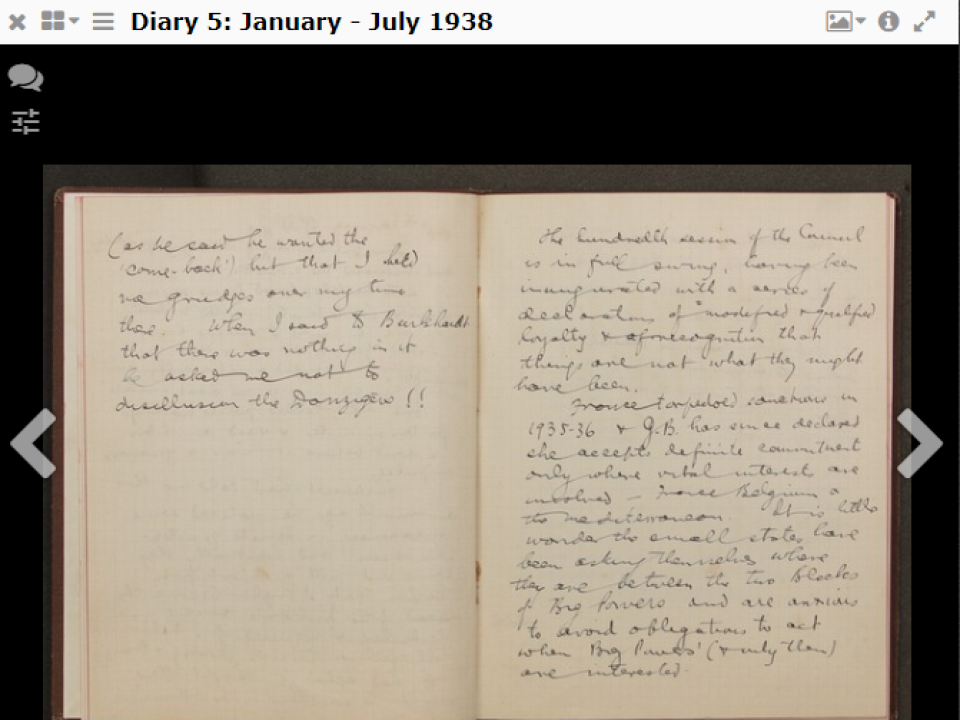 Diary 5: January - July 1938
(as he said he wanted the
'come-back') but that I held
no grudges over my time
there. When I said to Burkhardt
that there was nothing in it
he asked me not to
disillusion the Danzigers !!
The hundredth session of the Council
is in full swing, having been
inaugurated with a series of
declarations of modified & qualified
loyalty & of recognition that
things are not what they might
have been.
France torpedoed sanctions in
1935-36 & G.B. has since declared
she accepts definite commitment
only where vital interests are
involved – France Belgium &
the mediterranean. It is little
wonder the small states have
been asking themselves where
they are between the two Blocks
of Big Powers and are anxious
to avoid obligations to act
when 'Big Powers' (& only then)
are interested.